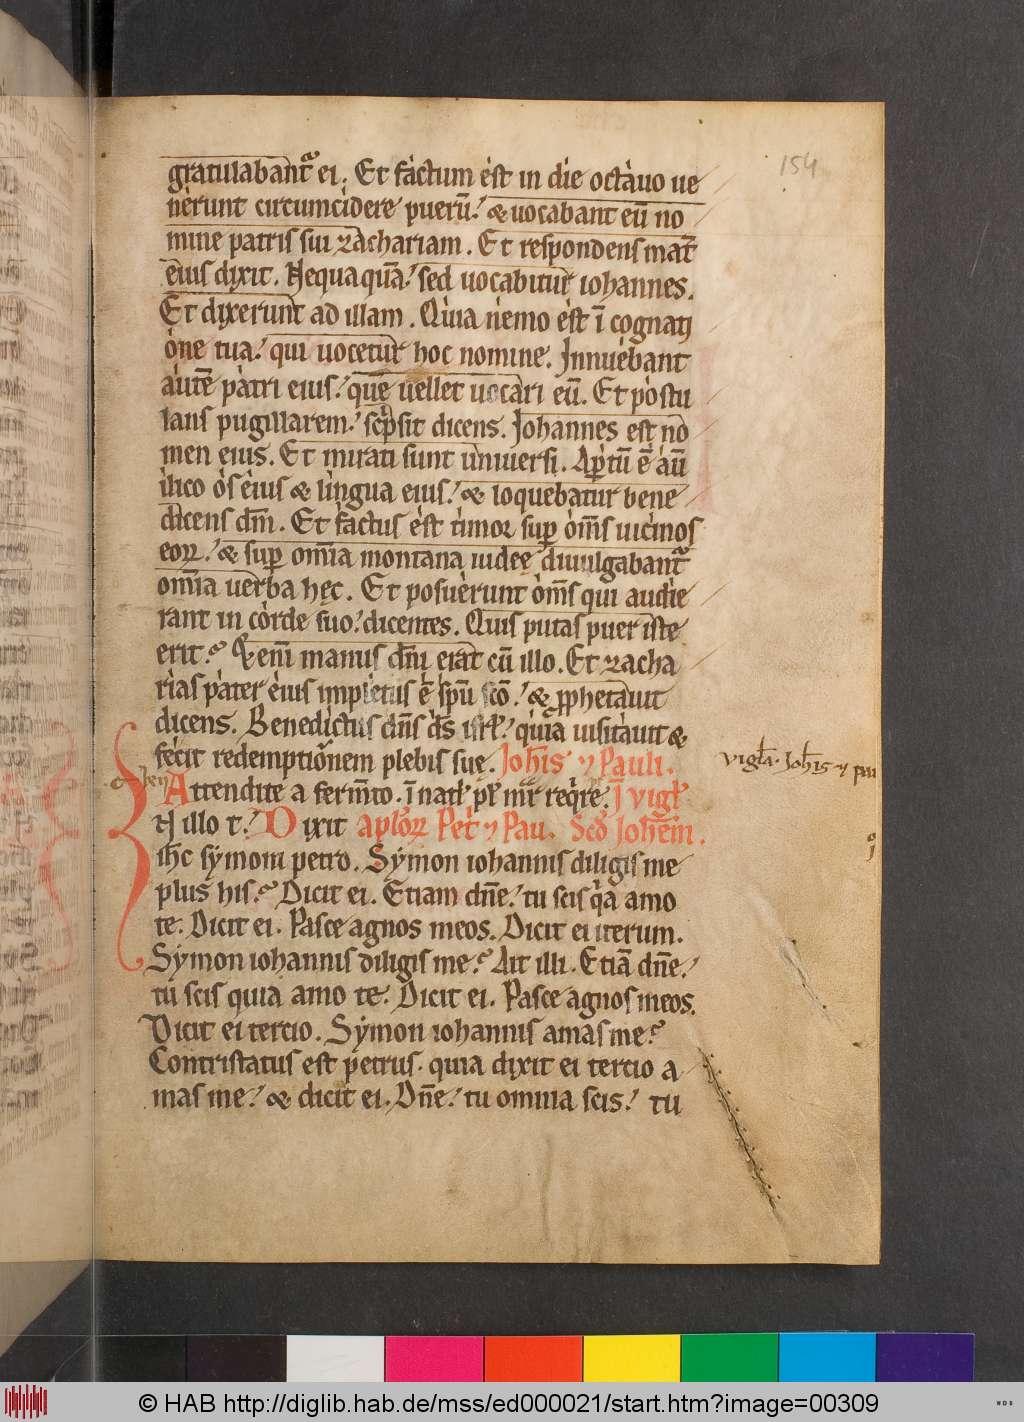 154
gratulabant᷑ ei. Et factum est in die octauo ue
nerunt circumcidere pueru̅. & uocabant eu̅ no
mine patris sui zachariam. Et respondens mat̅
eius dixit. Nequaqua̅. sed uocabitur iohannes.
Et dixerunt ad illam. Quia nemo est i̅ cognati
one tua. qui uocetur hoc nomine. Innuebant
aute̅ patri eius. que̅ uellet uocari eu̅. Et postu
lans pugillarem. sc̅psit dicens. Johannes est no
men eius. Et mirati sunt uniuersi. Ap̅tu̅ e̅ au̅
ilico os eius & lingua eius. & loquebatur bene
dicens dm̅. Et factus est timor sup̅ om̅s uicinos
eoꝝ. & sup̅ om̅ia montana iudeę diuulgabant᷑
om̅ia uerba hęc. Et posuerunt om̅s qui audie
rant in corde suo. dicentes. Quis putas puer iste
erit? Eteni̅ manus dn̅i erat cu̅ illo. Et zacha
rias pater eius impletus e̅ spu̅ sc̅o. & ꝓphetauit
dicens. Benedictus dn̅s ds̅ isrl̅. quia uisitauit &
fecit redemptione̅m plebis sue. Joh̅is ⁊ Pauli.
vigl̅a. Joh̅is ⁊ pau
Attendite a ferm̅to. i̅ natl̅ pl̅ mr̅ req̅re. I̅ vigl̅
N illo t. Dixit apl̅oꝝ Pet̅ ⁊ Pau. Sc̅d Joh̅em.
ih̅c symoni petro. Symon iohannis diligis me
plus his? Dicit ei. Etiam dn̅e. tu scis q̅a amo
te. Dicit ei. Pasce agnos meos. Dicit ei iterum.
Symon iohannis diligis me? Ait illi. Etia̅ dn̅e.
tu scis quia amo te. Dicit ei. Pasce agnos meos.
Dicit ei tercio. Symon iohannis amas me?
Contristatus est petrus. quia dixit ei tercio a
mas me. & dicit ei. Dn̅e. tu omnia scis. tu
© HAB http://diglib.hab.de/mss/ed000021/start.htm?image=00309